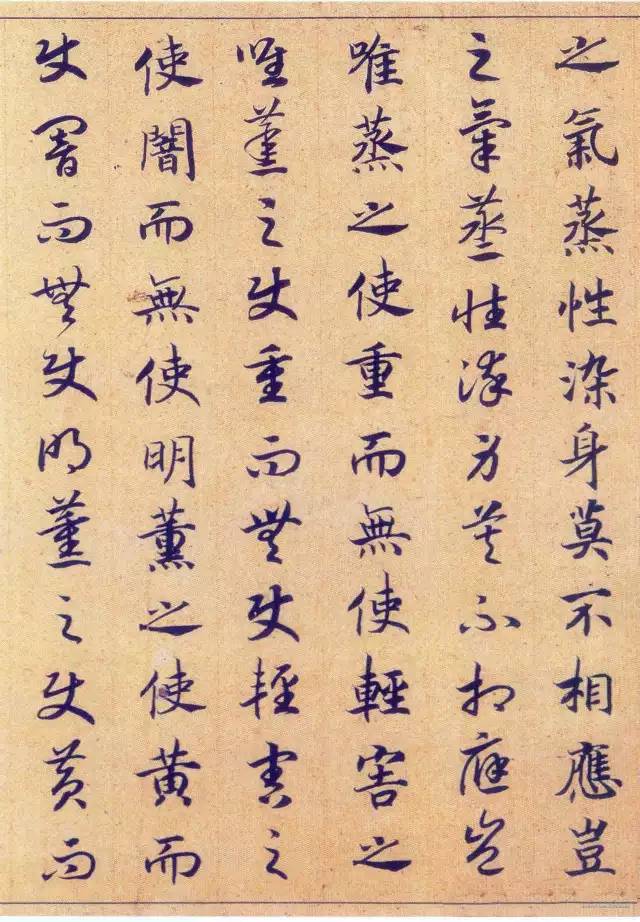 之氣蒸性染身莫不相應豈
之氣蒸性染身莫不相應豈
唯蒸之使重而無使輕害之
唯蒸之使重而無使輕害之
使闇而無使明薰之使黃而
使闇而無使明薰之使黃而